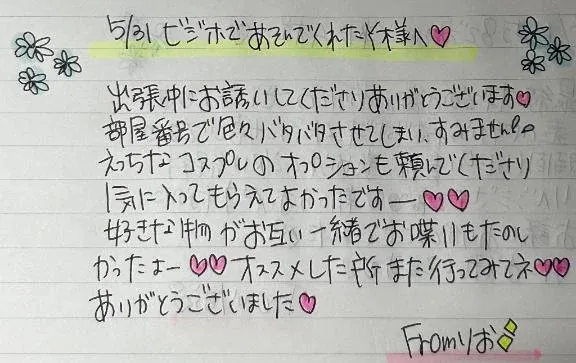 5/31 ビジホであそんでくれたY様へ♡
出張中にお誘いしてくださりありがとうございます♡
部屋番号で色々バタバタさせてしまい、すみません!。
えっちなコスプレのオプションも頼んでくださり
気に入ってもらえてよかったですー♡♡
好きな物がお互い一緒でお喋りもたのし
かったよー♡♡ オススメした所また行ってみてネ♡♡
ありがとうございました♡
Fromりお